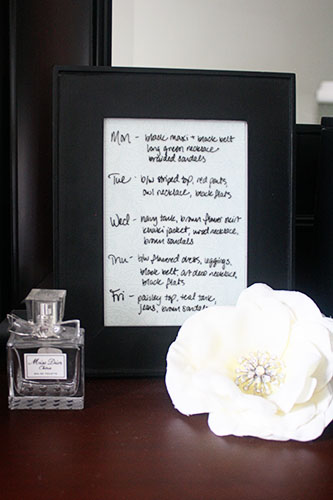 Mon - black maxi + black belt
long green necklace
braided sandals
Tue - b/w striped top, red pants,
owl necklace, black flats
Wed - navy tank, brown flower skirt
khaki jacket, wood necklace,
brown sandals
Thu - b/w flowered dress, leggings,
black belt, art deco necklace,
black flats
Fri - paisley top, teal tank,
jeans, brown sandals
Miss Dior
Chérie